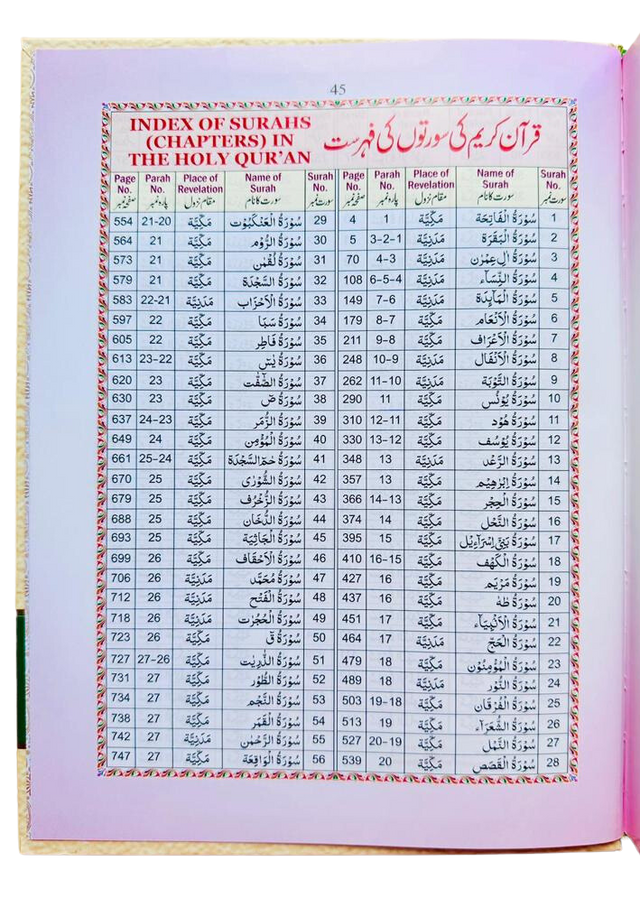 45
INDEX OF SURAHS
(CHAPTERS) IN
THE HOLY QUR'AN
قرآن کریم کی سورتوں کی فہرست
Page No. Parah No. Place of Revelation Name of Surah Surah No. Page No. Parah No. Place of Revelation Name of Surah Surah No.
صفحہ نمبر پارہ نمبر مقام نزول سورت کا نام سورت نمبر صفحہ نمبر پارہ نمبر مقام نزول سورت کا نام سورت نمبر
554 21-20 مَكِّيَّة سُوْرَةُ الْعَنْكَبُوْت 29 4 1 مَكِّيَّة سُوْرَةُ الْفَاتِحَة 1
564 21 مَكِّيَّة سُوْرَةُ الرُّوْم 30 5 3-2-1 مَدَنِيَّة سُوْرَةُ الْبَقَرَة 2
573 21 مَكِّيَّة سُوْرَةُ لُقْمٰن 31 70 4-3 مَدَنِيَّة سُوْرَةُ اٰلِ عِمْرٰن 3
579 21 مَكِّيَّة سُوْرَةُ السَّجْدَة 32 108 6-5-4 مَدَنِيَّة سُوْرَةُ النِّسَآء 4
583 22-21 مَدَنِيَّة سُوْرَةُ الْاَحْزَاب 33 149 7-6 مَدَنِيَّة سُوْرَةُ الْمَآىِٕدَة 5
597 22 مَكِّيَّة سُوْرَةُ سَبَا 34 179 8-7 مَكِّيَّة سُوْرَةُ الْاَنْعَام 6
605 22 مَكِّيَّة سُوْرَةُ فَاطِر 35 211 9-8 مَكِّيَّة سُوْرَةُ الْاَعْرَاف 7
613 23-22 مَكِّيَّة سُوْرَةُ يٰسٓ 36 248 10-9 مَدَنِيَّة سُوْرَةُ الْاَنْفَال 8
620 23 مَكِّيَّة سُوْرَةُ الصّٰٓفّٰت 37 262 11-10 مَدَنِيَّة سُوْرَةُ التَّوْبَة 9
630 23 مَكِّيَّة سُوْرَةُ صٓ 38 290 11 مَكِّيَّة سُوْرَةُ يُوْنُس 10
637 24-23 مَكِّيَّة سُوْرَةُ الزُّمَر 39 310 12-11 مَكِّيَّة سُوْرَةُ هُوْد 11
649 24 مَكِّيَّة سُوْرَةُ الْمُؤْمِن 40 330 13-12 مَكِّيَّة سُوْرَةُ يُوْسُف 12
661 25-24 مَكِّيَّة سُوْرَةُ حٰمٓ السَّجْدَة 41 348 13 مَدَنِيَّة سُوْرَةُ الرَّعْد 13
670 25 مَكِّيَّة سُوْرَةُ الشُّوْرٰى 42 357 13 مَكِّيَّة سُوْرَةُ اِبْرٰهِيْم 14
679 25 مَكِّيَّة سُوْرَةُ الزُّخْرُف 43 366 14-13 مَكِّيَّة سُوْرَةُ الْحِجْر 15
688 25 مَكِّيَّة سُوْرَةُ الدُّخَان 44 374 14 مَكِّيَّة سُوْرَةُ النَّحْل 16
693 25 مَكِّيَّة سُوْرَةُ الْجَاثِيَة 45 395 15 مَكِّيَّة سُوْرَةُ بَنِيْٓ اِسْرَآءِيْل 17
699 26 مَكِّيَّة سُوْرَةُ الْاَحْقَاف 46 410 16-15 مَكِّيَّة سُوْرَةُ الْكَهْف 18
706 26 مَدَنِيَّة سُوْرَةُ مُحَمَّد 47 427 16 مَكِّيَّة سُوْرَةُ مَرْيَم 19
712 26 مَدَنِيَّة سُوْرَةُ الْفَتْح 48 437 16 مَكِّيَّة سُوْرَةُ طٰهٰ 20
718 26 مَدَنِيَّة سُوْرَةُ الْحُجُرٰت 49 451 17 مَكِّيَّة سُوْرَةُ الْاَنْبِيَآء 21
723 26 مَكِّيَّة سُوْرَةُ قٓ 50 464 17 مَدَنِيَّة سُوْرَةُ الْحَجّ 22
727 27-26 مَكِّيَّة سُوْرَةُ الذّٰرِيٰت 51 479 18 مَكِّيَّة سُوْرَةُ الْمُؤْمِنُوْن 23
731 27 مَكِّيَّة سُوْرَةُ الطُّوْر 52 489 18 مَدَنِيَّة سُوْرَةُ النُّوْر 24
734 27 مَكِّيَّة سُوْرَةُ النَّجْم 53 503 19-18 مَكِّيَّة سُوْرَةُ الْفُرْقَان 25
738 27 مَكِّيَّة سُوْرَةُ الْقَمَر 54 513 19 مَكِّيَّة سُوْرَةُ الشُّعَرَآء 26
742 27 مَدَنِيَّة سُوْرَةُ الرَّحْمٰن 55 527 20-19 مَكِّيَّة سُوْرَةُ النَّمْل 27
747 27 مَكِّيَّة سُوْرَةُ الْوَاقِعَة 56 539 20 مَكِّيَّة سُوْرَةُ الْقَصَص 28